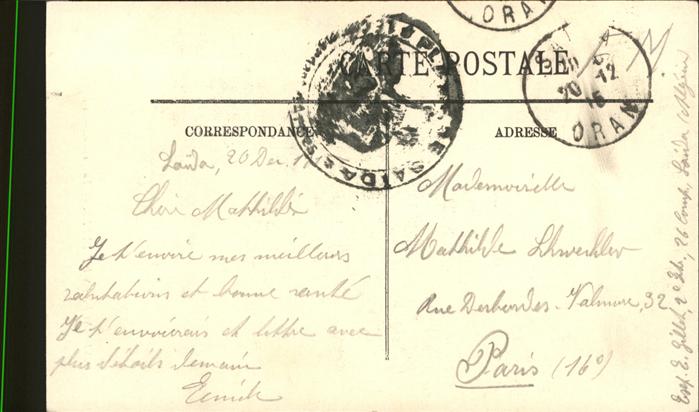 CARTE POSTALE
CORRESPONDANCE
ADRESSE
PLACE DE SAIDA
SAIDA
20 -12
15
ORAN
ORAN
Saïda, 20 Dec. 15
Chère Mathilde
Je t'envoie mes meilleurs
salutations et bonne santé
Je t'envoierais et lettre avec
plus détails demain
Emile
Mademoiselle
Mathilde
Rue Desbordes-Valmore, 32
Paris (16e)
Exp. E. Gillet, 2e Etr., 26 Comp. Saïda Algérie